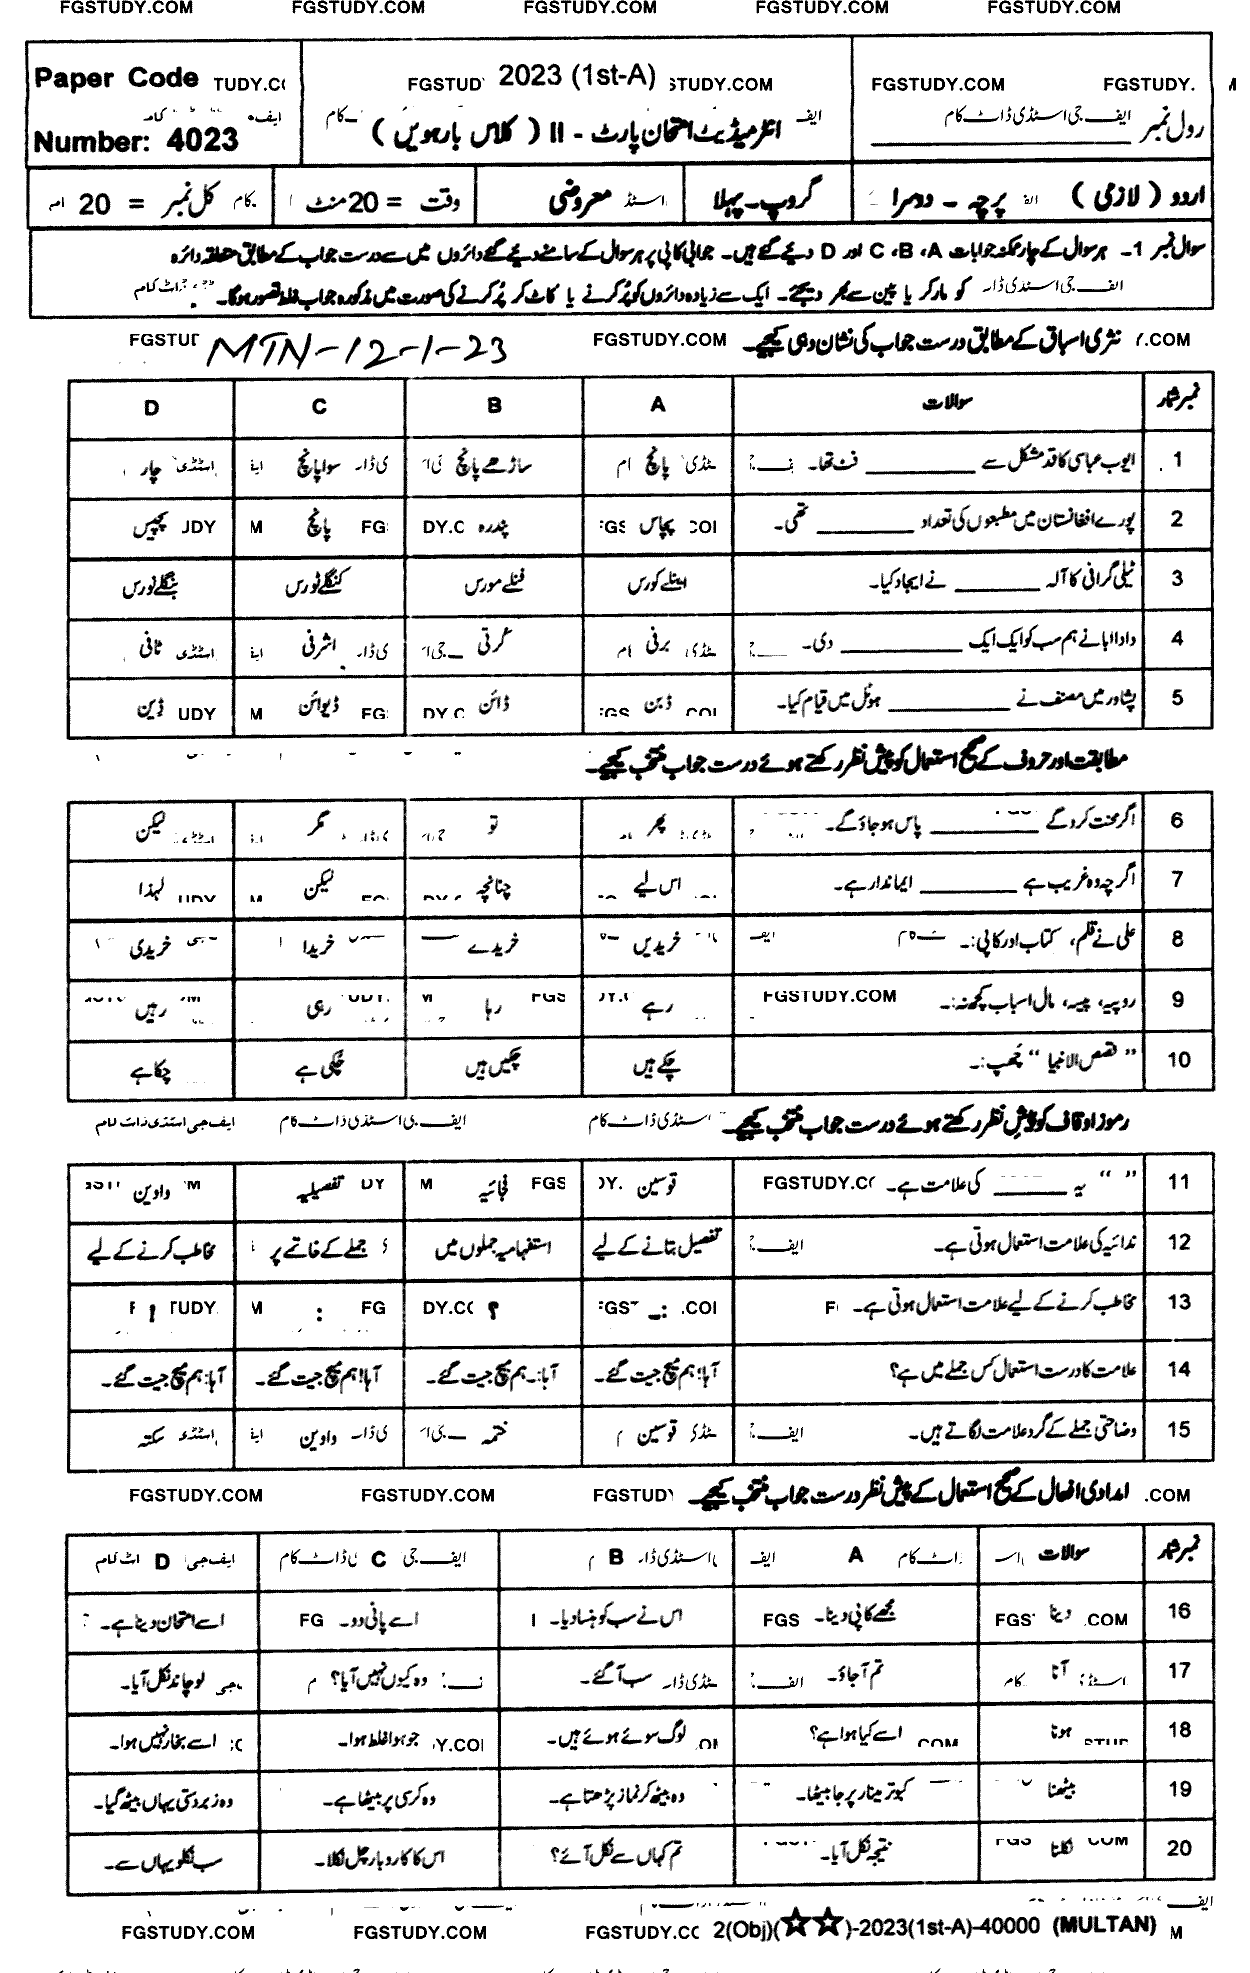 FGSTUDY.COM FGSTUDY.COM FGSTUDY.COM FGSTUDY.COM FGSTUDY.COM
Paper Code
Number: 4023
2023 (1st-A)
انٹرمیڈیٹ امتحان پارٹ - II ( کلاس بارہویں )
رول نمبر
اردو ( لازمی ) پرچہ - دوسرا گروپ - پہلا معروضی وقت = 20 منٹ کل نمبر = 20
سوال نمبر 1- ہر سوال کے چار ممکنہ جوابات A، B، C اور D دیئے گئے ہیں۔ جوابی کاپی پر ہر سوال کے سامنے دیئے گئے دائروں میں سے درست جواب کے مطابق متعلقہ دائرہ
کو مارکر یا پین سے بھر دیجئے۔ ایک سے زیادہ دائروں کو پُر کرنے یا کاٹ کر پُر کرنے کی صورت میں مذکورہ جواب غلط تصور ہوگا۔
MTN-12-1-23
نثری اسباق کے مطابق درست جواب کی نشان دہی کیجیے۔
نمبر شمار سوالات A B C D
1 ایوب عباسی کا قد مشکل سے ________ فٹ تھا۔ پانچ ساڑھے پانچ سوا پانچ چار
2 پورے افغانستان میں مطبعوں کی تعداد ________ تھی۔ پچاس پندرہ پانچ پچیس
3 ٹیلی گرافی کا آلہ ________ نے ایجاد کیا۔ ایٹلے کورس فنلے مورس کنگلے ٹورس بنگلے نورس
4 دادا ابا نے ہم سب کو ایک ایک ________ دی۔ برفی گرتی اشرفی ٹافی
5 پشاور میں مصنف نے ________ ہوٹل میں قیام کیا۔ ڈبن ڈائن ڈیوائن ڈین
مطابقت اور حروف کے صحیح استعمال کو پیش نظر رکھتے ہوئے درست جواب منتخب کیجیے۔
6 اگر محنت کرو گے ________ پاس ہو جاؤ گے۔ پھر تو مگر لیکن
7 اگرچہ وہ غریب ہے ________ ایماندار ہے۔ اس لیے چنانچہ لیکن لہذا
8 علی نے قلم، کتاب اور کاپی:۔ خریدیں خریدے خریدا خریدی
9 روپیہ، پیسہ، مال اسباب کچھ نہ:۔ رہے رہا رہی رہیں
10 "قصص الانبیا" چھپ:۔ چکے ہیں چکیں ہیں چُکی ہے چکا ہے
رموز اوقاف کو پیش نظر رکھتے ہوئے درست جواب منتخب کیجیے۔
11 " " یہ ________ کی علامت ہے۔ قوسین فجائیہ تفصیلیہ واوین
12 ندائیہ کی علامت استعمال ہوتی ہے۔ تفصیل بتانے کے لیے استفہامیہ جملوں میں جملے کے خاتمے پر مخاطب کرنے کے لیے
13 مخاطب کرنے کے لیے علامت استعمال ہوتی ہے۔ :۔ ؟ : !
14 علامت کا درست استعمال کس جملے میں ہے؟ آہا؛ ہم میچ جیت گئے۔ آہا:۔ ہم میچ جیت گئے۔ آہا! ہم میچ جیت گئے۔ آہا: ہم میچ جیت گئے۔
15 وضاحتی جملے کے گرد علامت لگاتے ہیں۔ قوسین ختمہ واوین سکتہ
امدادی افعال کے صحیح استعمال کے پیش نظر درست جواب منتخب کیجیے۔
FGSTUDY.COM FGSTUDY.COM
نمبر شمار سوالات A B C D
16 دینا مجھے کاپی دینا۔ اس نے سب کو ہنسا دیا۔ اسے پانی دو۔ اسے امتحان دینا ہے۔
17 آنا تم آ جاؤ۔ سب آ گئے۔ وہ کیوں نہیں آیا؟ لو چاند نکل آیا۔
18 ہونا اسے کیا ہوا ہے؟ لوگ سوئے ہوئے ہیں۔ جو ہوا غلط ہوا۔ اسے بخار نہیں ہوا۔
19 بیٹھنا کبوتر مینار پر جا بیٹھا۔ وہ بیٹھ کر نماز پڑھتا ہے۔ وہ کرسی پر بیٹھا ہے۔ وہ زبردستی یہاں بیٹھ گیا۔
20 نکلنا نتیجہ نکل آیا۔ تم کہاں سے نکل آئے؟ اس کا کاروبار چل نکلا۔ سب نکلو یہاں سے۔
FGSTUDY.COM FGSTUDY.COM 2(Obj)(☆☆)-2023(1st-A)-40000 (MULTAN)